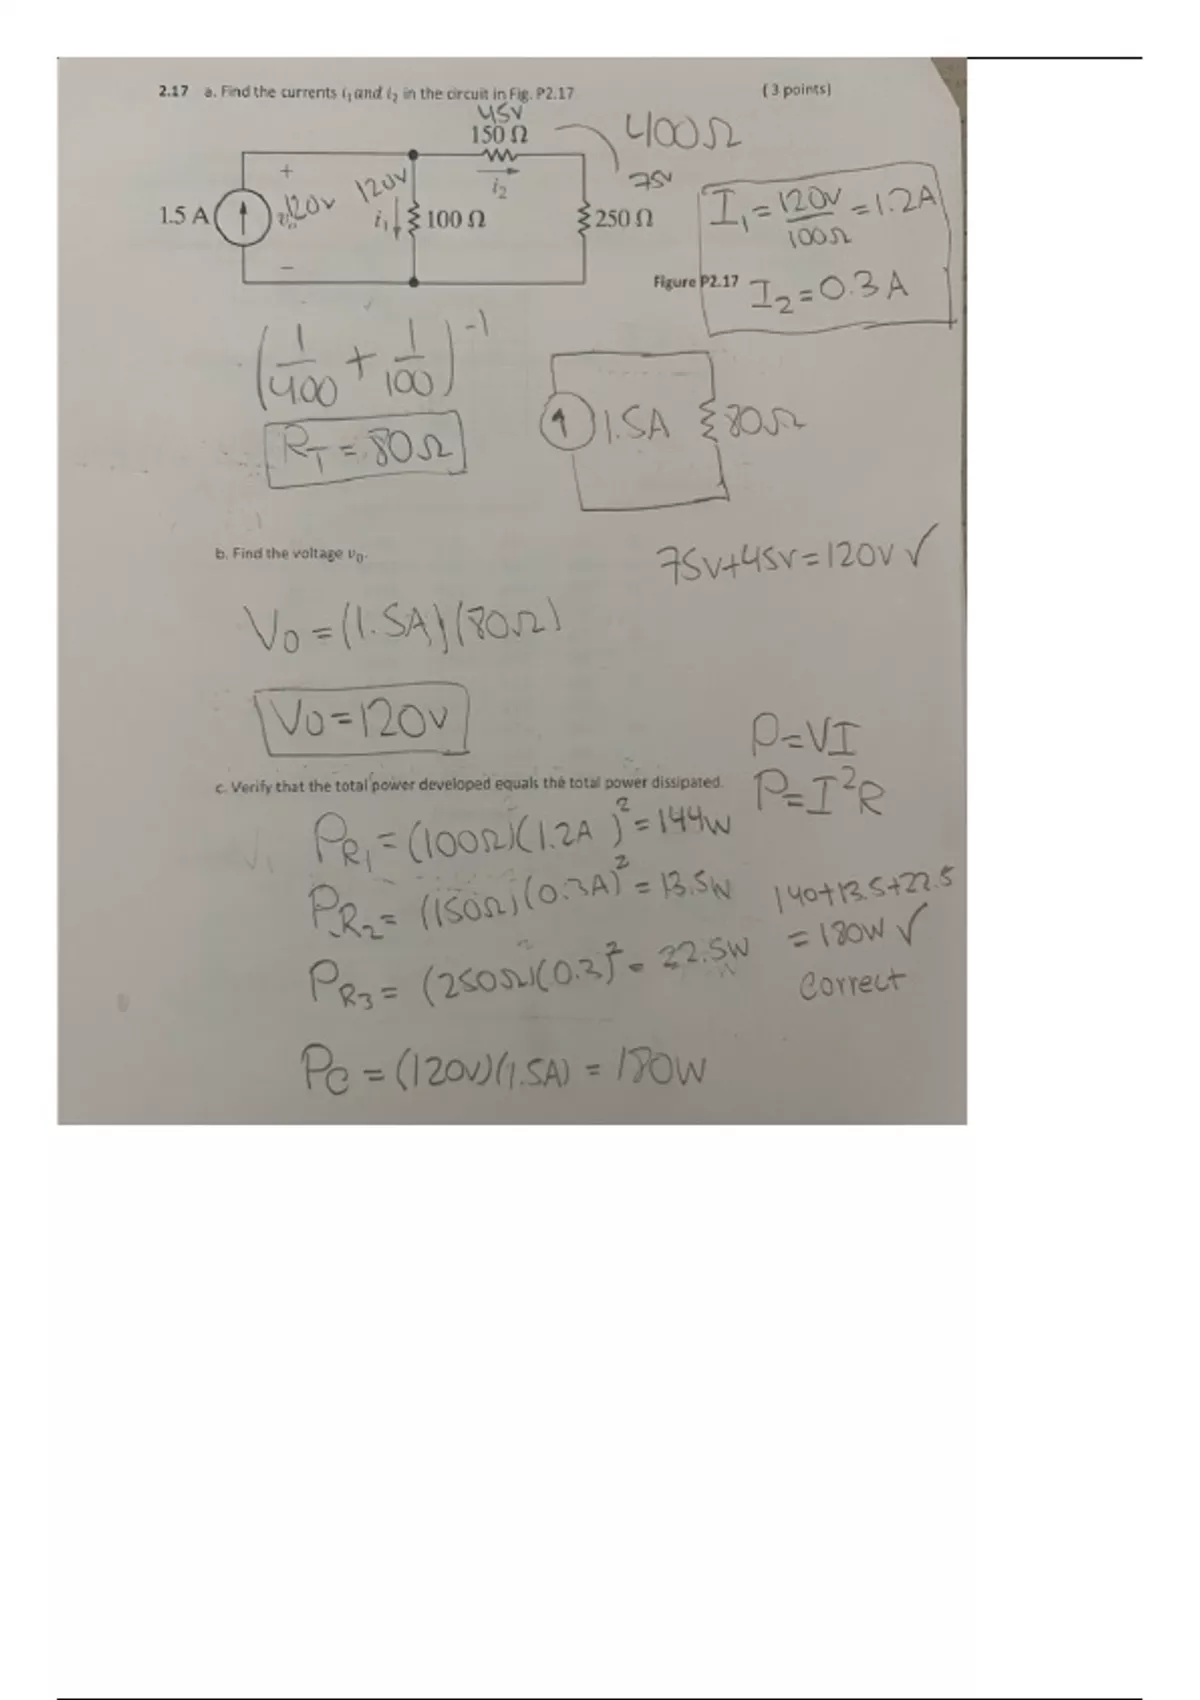 2.17 a. Find the currents i₁ and i₂ in the circuit in Fig. P2.17 (3 points)
45V
150 Ω
400Ω
75V
+
120V
120V
i₂
1.5 A
i₁
100 Ω
250 Ω
I₁ = 120V/100Ω = 1.2A
−
Figure P2.17
I₂ = 0.3 A
(1/400 + 1/100)⁻¹
1.5A
80Ω
R_T = 80Ω
b. Find the voltage v₀.
75V+45V=120V ✓
V₀ = (1.5A)(80Ω)
V₀=120V
P=VI
c. Verify that the total power developed equals the total power dissipated.
P=I²R
P_R₁ = (100Ω)(1.2A)² = 144W
P_R₂ = (150Ω)(0.3A)² = 13.5W
140+13.5+22.5
= 180W ✓
P_R₃ = (250Ω)(0.3)² = 22.5W
Correct
P_C = (120V)(1.5A) = 180W